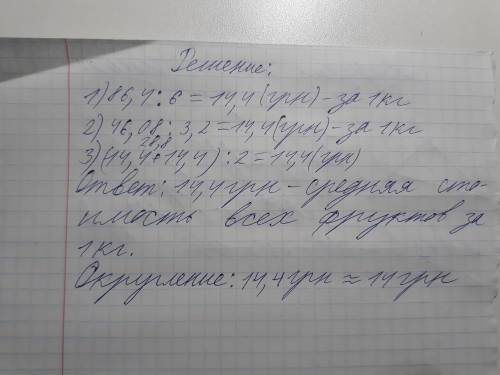 Решение:
1) 86,4 : 6 = 14,4 (грн) - за 1 кг
2) 46,08 : 3,2 = 14,4 (грн) - за 1 кг
28,8
3) (14,4 + 14,4) : 2 = 14,4 (грн)
Ответ: 14,4 грн - средняя сто-
имость всех фруктов за
1 кг.
Округление: 14,4 грн ≈ 14 грн